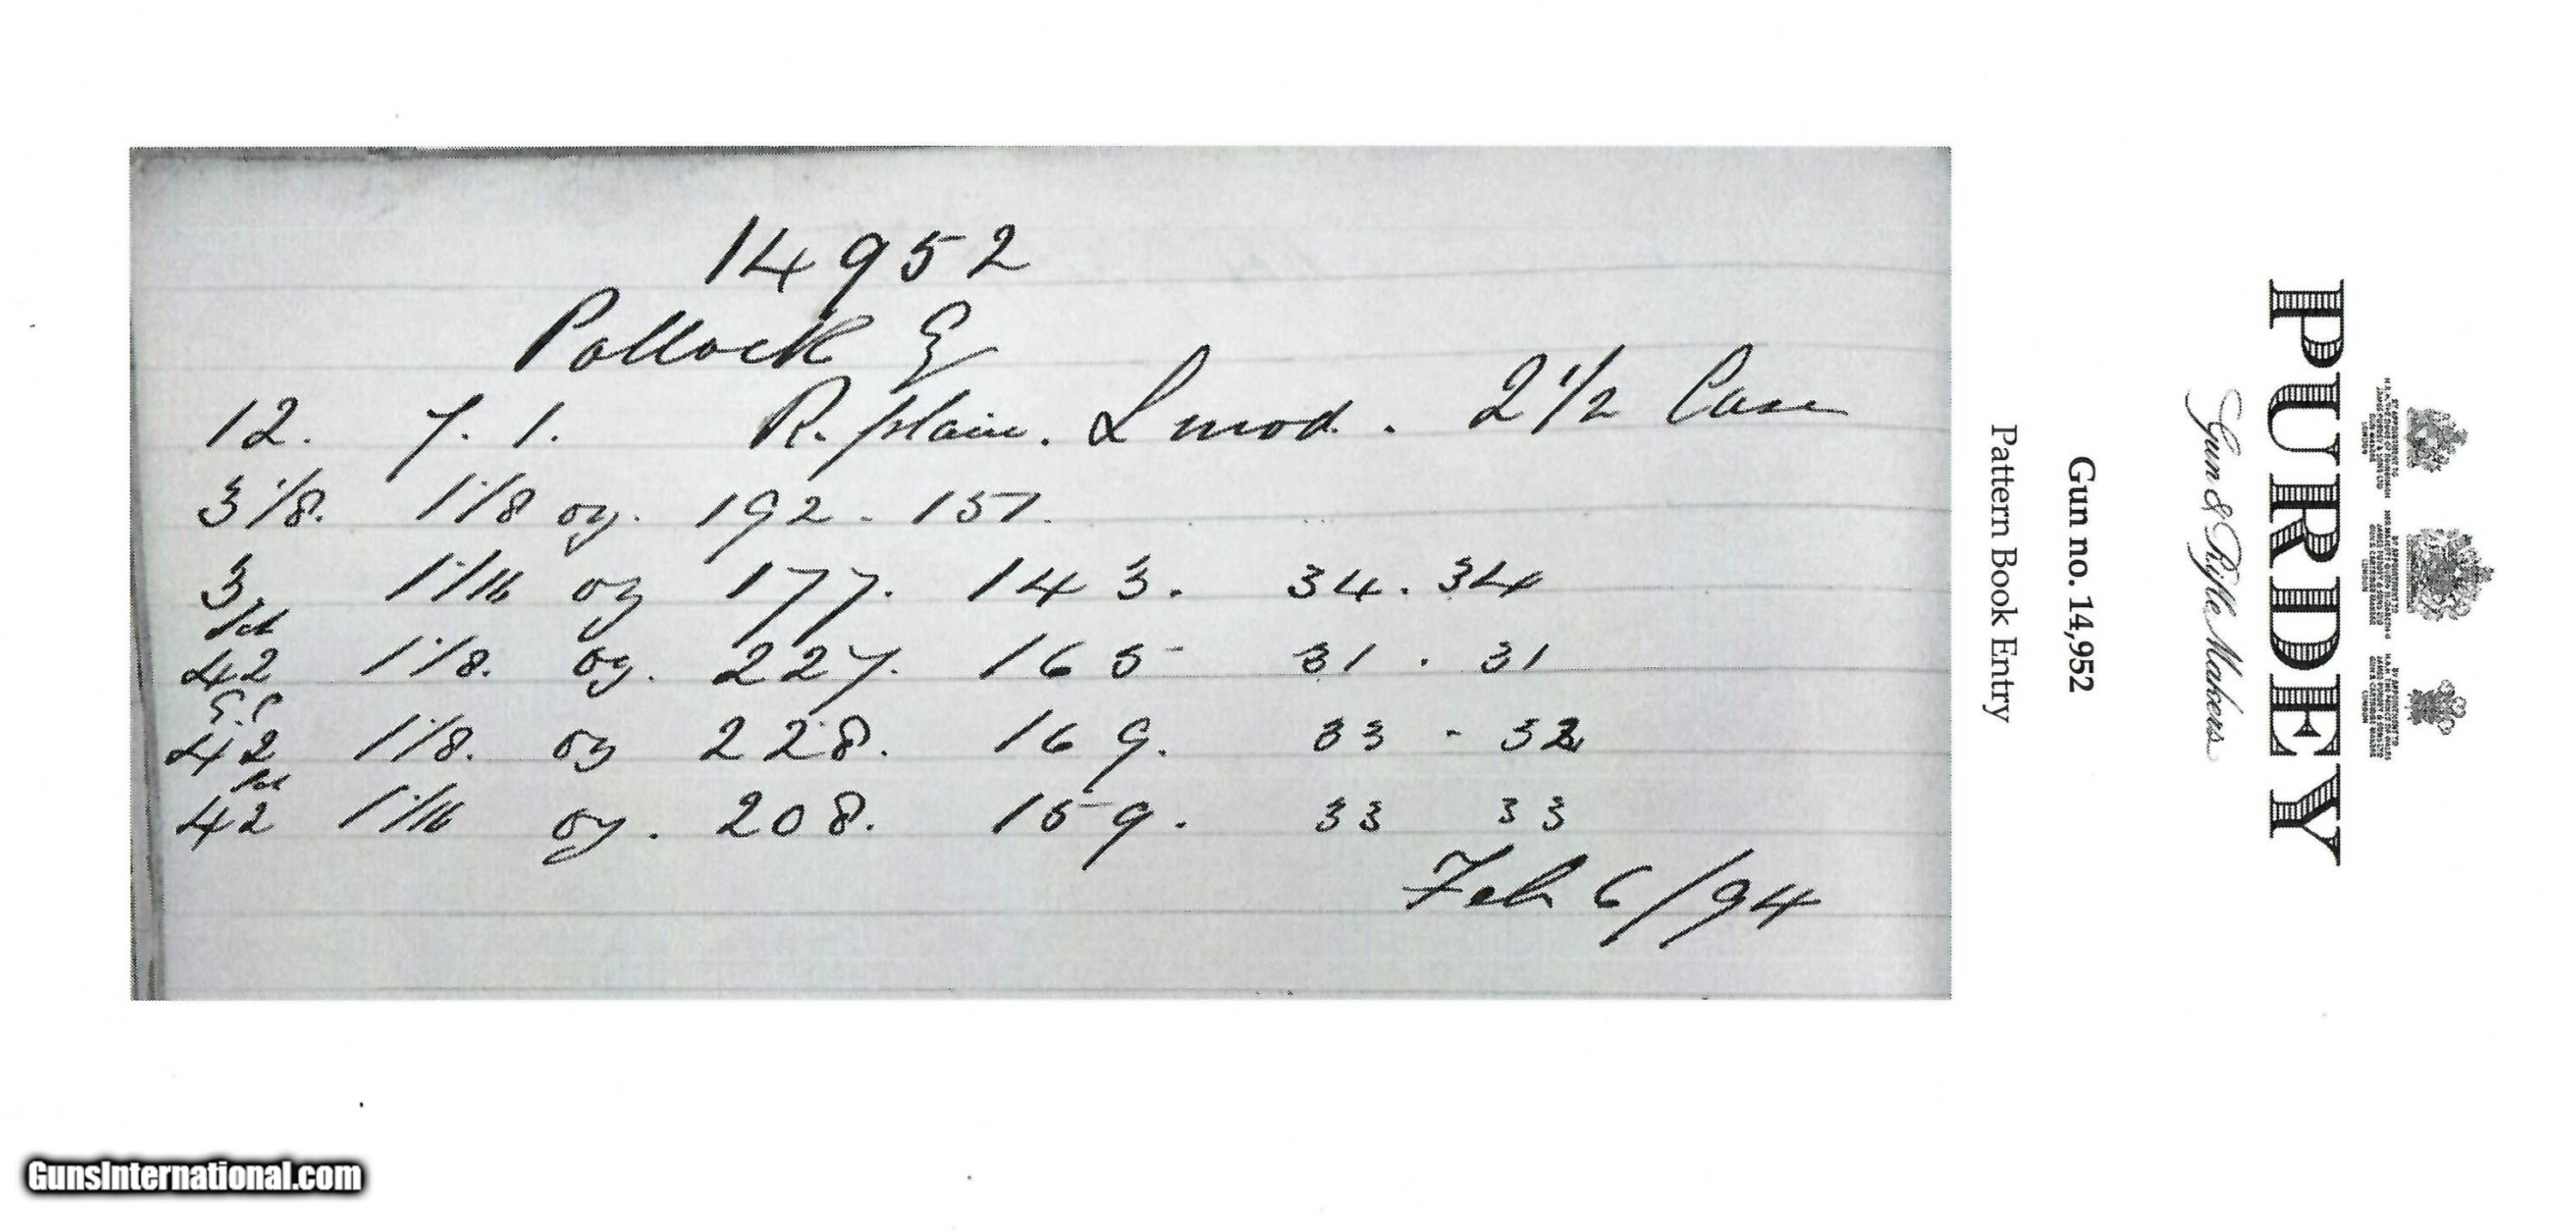 14952
Pollock E
12. 7. 1. R. plain. L mod. 2 1/2 Case
3 1/8. 1 1/8 oz. 192 - 157.
3 1 1/16 oz 177. 143. 34. 34
Sch
42 1 1/8. oz. 227. 165 31. 31
E.C
42 1 1/8. oz 228. 169. 33 - 32
Sch
42 1 1/16 oz. 208. 159. 33 33
Feb 6/94
Pattern Book Entry
Gun no. 14,952
Gun & Rifle Makers
PURDEY
GunsInternational.com